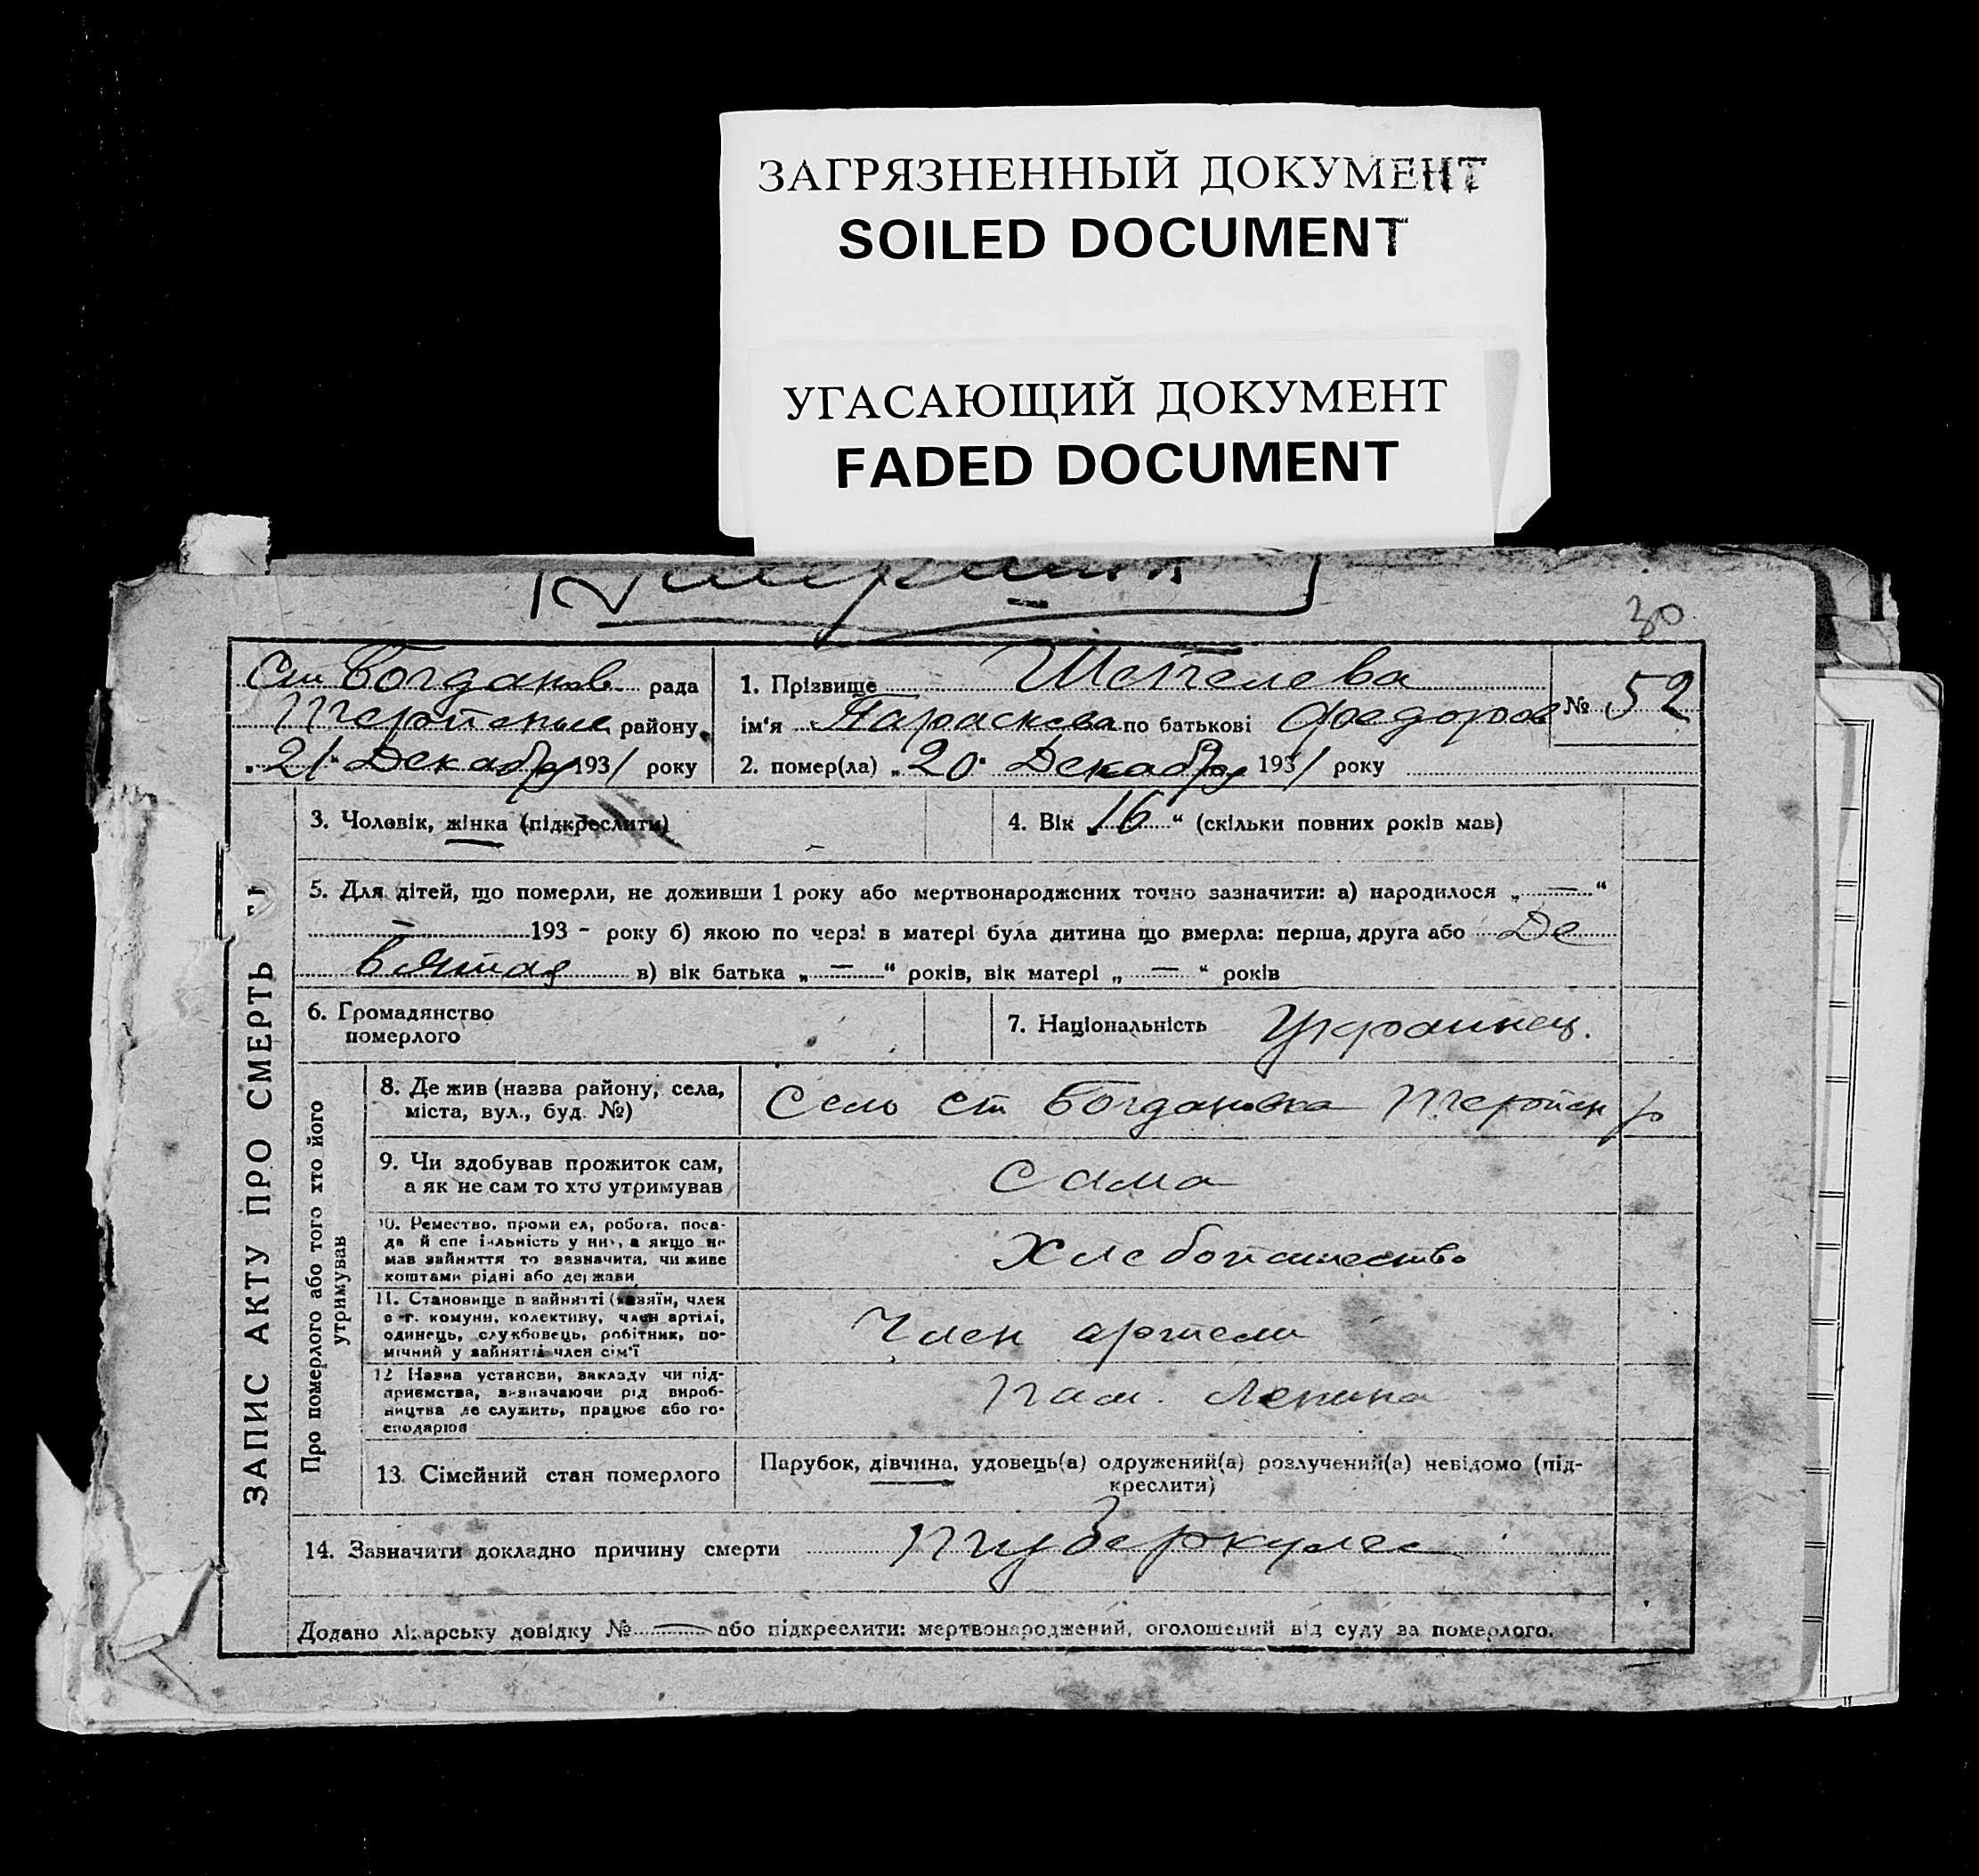 ЗАГРЯЗНЕННЫЙ ДОКУМЕНТ
SOILED DOCUMENT
УГАСАЮЩИЙ ДОКУМЕНТ
FADED DOCUMENT
30
Ст Богданов рада
району
„21“ Декабря 1931 року
1. Прізвище Шепелева
ім‘я Параскева по батькові Федоров
№ 52
2. помер(ла) „20“ Декабря 1931 року
ЗАПИС АКТУ ПРО СМЕРТЬ
3. Чоловік, жінка (підкреслити)
4. Вік „16“ (скільки повних років мав)
5. Для дітей, що померли, не доживши 1 року або мертвонароджених точно зазначити: а) народилося „ — “
— 193 - року б) якою по черзі в матері була дитина що вмерла: перша, друга або Де
вятая в) вік батька „ — “ років, вік матері „ — “ років
6. Громадянство
померлого
7. Національність Украинец.
Про померлого або того хто його
утримував
8. Де жив (назва району, села,
міста, вул., буд. №)
Село ст Богдановка р
9. Чи здобував прожиток сам,
а як не сам то хто утримував
Сама
10. Ремество, промисел, робота, поса-
да й спеціяльність у них, а якщо не
мав зайняття то зазначити, чи живе
коштами рідні або держави
Хлебопашество
11. Становище в зайнятті (хазяїн, член
с-г. комуни, колективу, член артілі,
одинець, службовець, робітник, по-
мічний у зайнятті член сім‘ї
Член артели
12 Назва установи, закладу чи під-
приємства, зазначаючи рід вироб-
ництва де служить, працює або го-
сподарює
Ленина
13. Сімейний стан померлого
Парубок, дівчина, удовець(а) одружений(а) розлучений(а) невідомо (під-
креслити)
14. Зазначити докладно причину смерти туберкулес
Додано лікарську довідку № — або підкреслити: мертвонароджений, оголошений від суду за померлого.